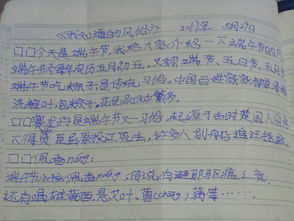 《我知道的风俗》 2017年 5月29日
□□今天是端午节,我给大家介绍一下端午节的风
端午节为每年农历五月初五,又称端阳节、五日节、五月节
端午节吃粽子是传统习俗。中国百姓家家都要
洗粽叶、包粽子,花色品种繁多。
□□赛龙舟是端午节又一习俗。起源于古时楚国人因舍
不得贤臣屈原投江死去,许多人划船追赶拯救
□□佩香náng:
端午节小孩佩香náng,传说有避邪驱瘟之意
还有喝雄黄酒,悬艾叶、菖(chāng)蒲等……